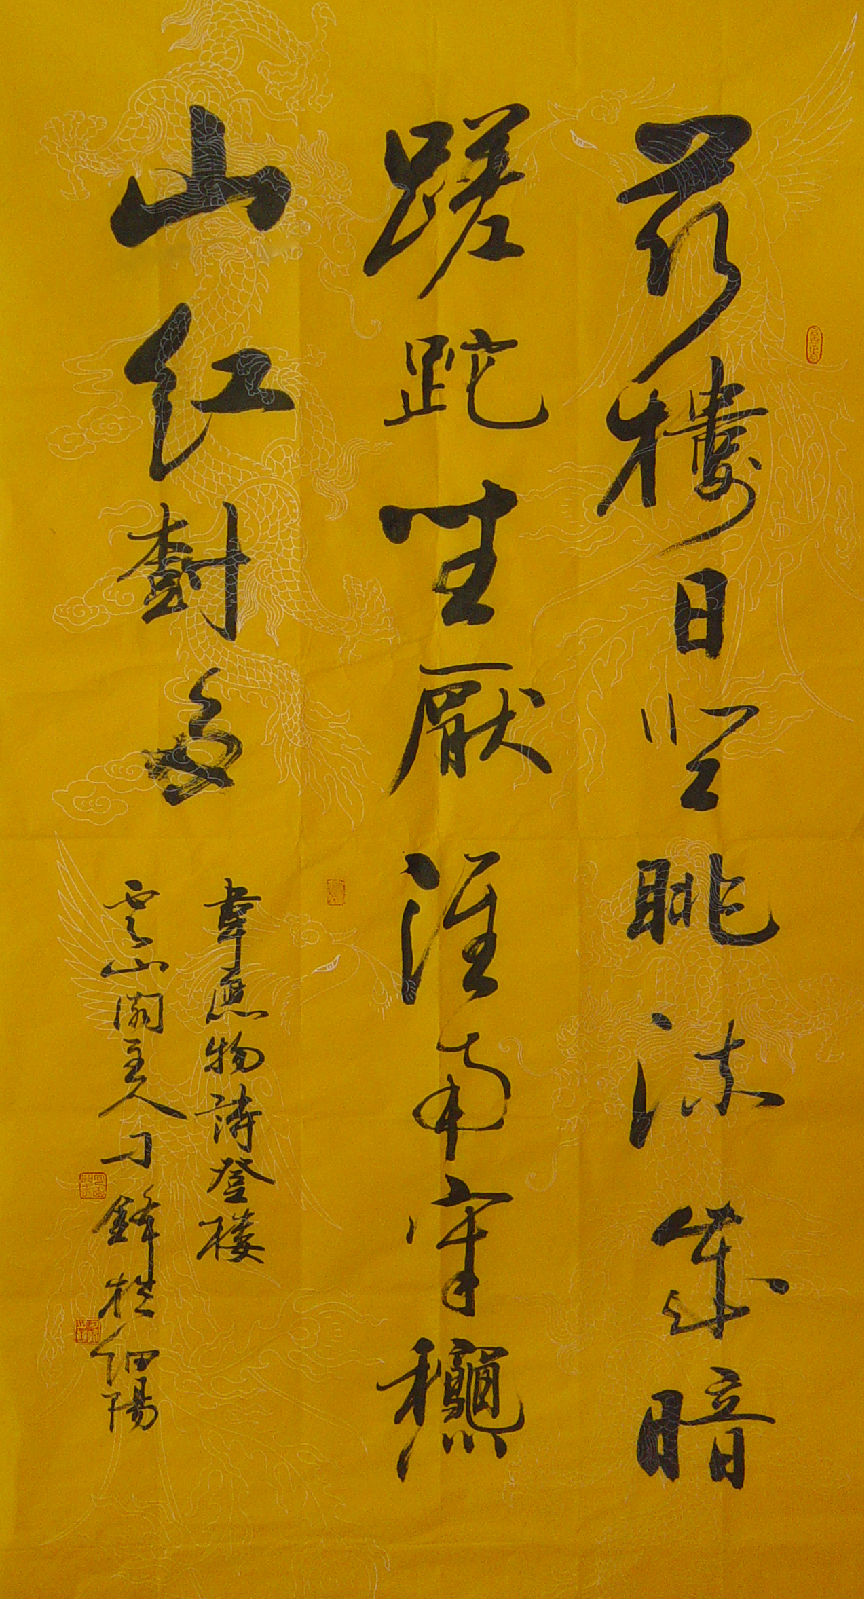 茲樓日登眺流歲暗
蹉跎坐厭淮南守龝
山紅樹多
韋應物詩登樓
雲山主人刁鋒於細陽